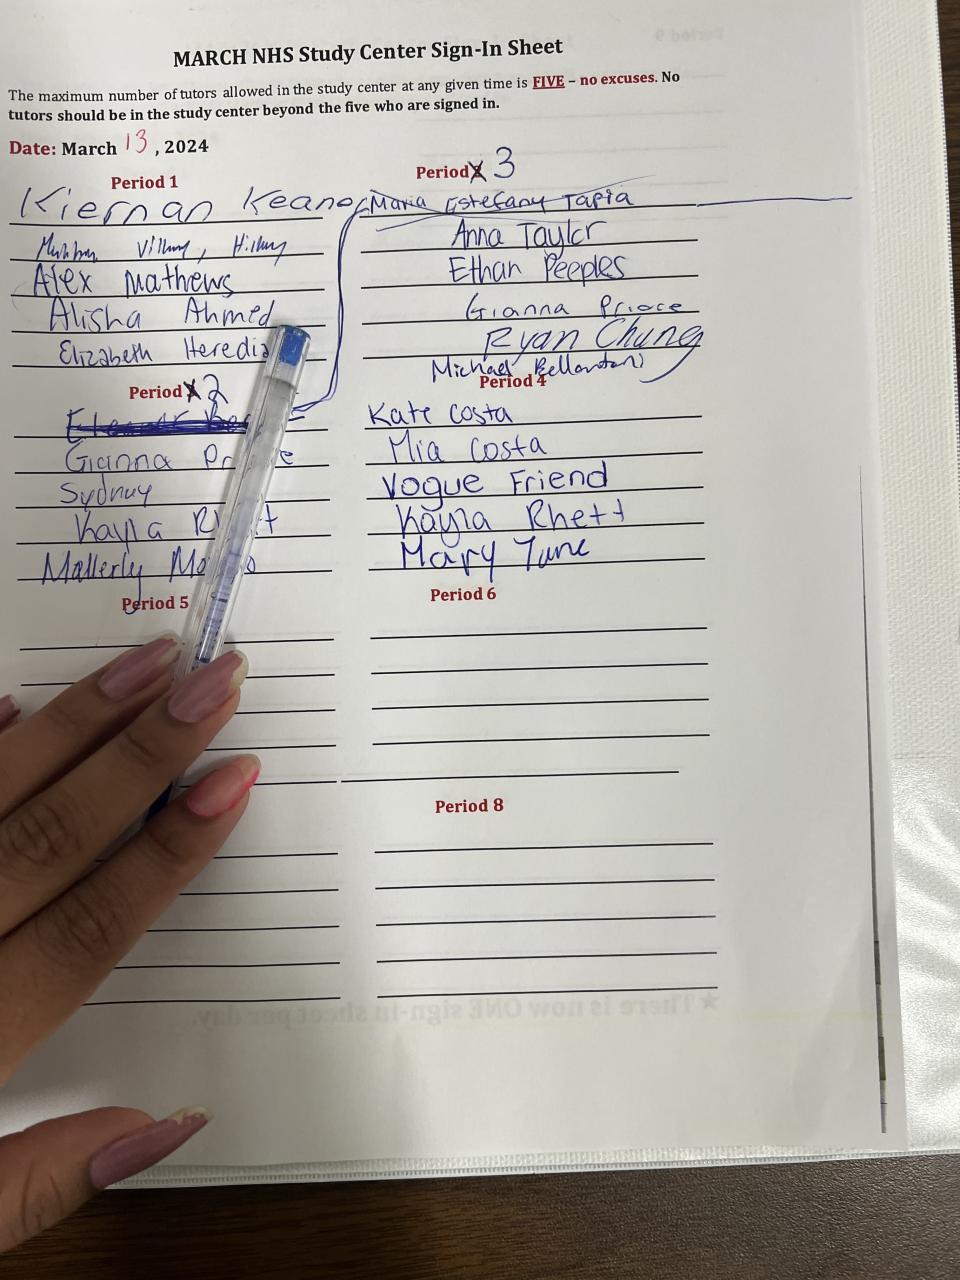 MARCH NHS Study Center Sign-In Sheet
The maximum number of tutors allowed in the study center at any given time is FIVE – no excuses. No
tutors should be in the study center beyond the five who are signed in.
Date: March 13, 2024
Period 1
Kiernan Keane
Hilary
Alex Mathews
Alisha Ahmed
Elizabeth Heredia
Period 2
Gianna
Sydney
Kayla
Mallerly
Period 3
Maria Estefany Tapia
Anna Taylor
Ethan Peeples
Gianna
Ryan Chung
Michael
Period 4
Kate Costa
Mia Costa
Vogue Friend
Kayla Rhett
Mary Tune
Period 5
Period 6
Period 8